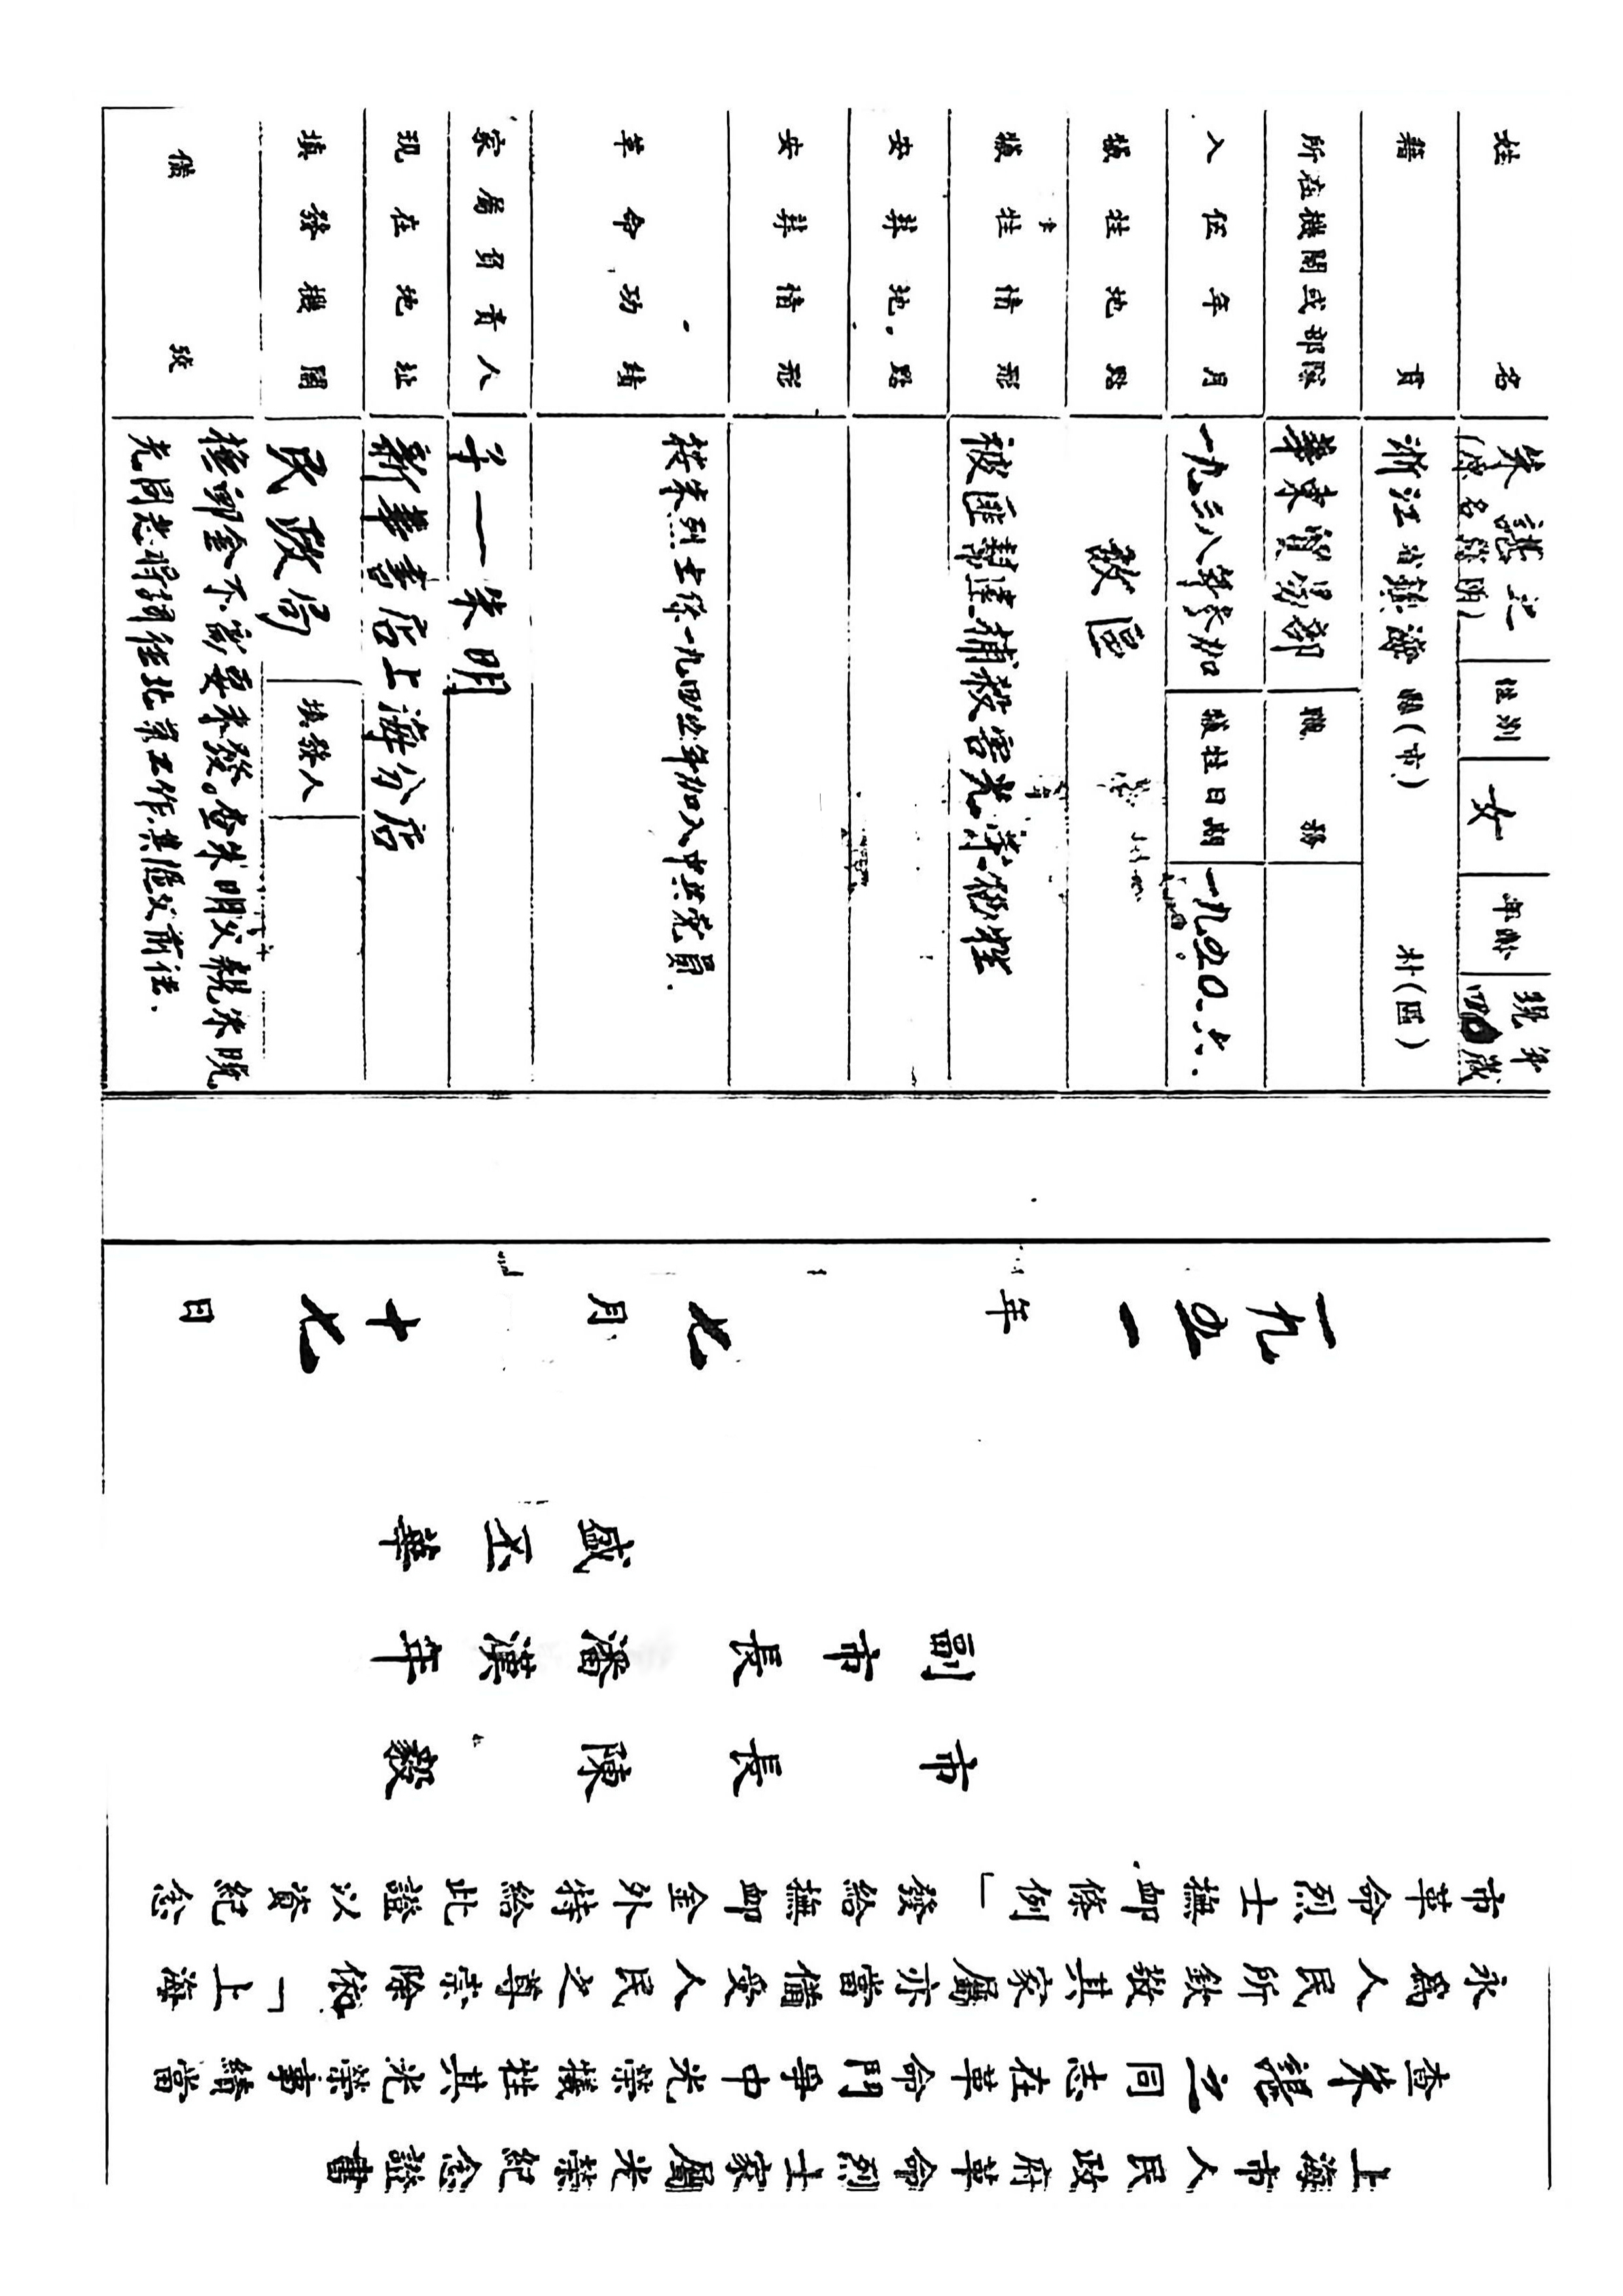 姓名 朱諶之 性別 女 年齡 現年四 歲
(原名 明)
籍貫 浙江省鎮海縣(市) 村(區)
所在機關或部隊 華東貿易部 職務
入伍年月 一九三八年參加 犧牲日期 一九五〇.六.
犧牲地點 敵區
犧牲情形 被匪幫逮捕殺害光榮犧牲
安葬地點
安葬情形
革命功績 按朱烈士係一九四五年加入中共党員.
家屬負責人 子一朱明
現在地址 新華書店上海分店
填發機關 民政局 填發人
備攷 撫卹金不需要未發。查朱明父親朱曉
光同志將調往北京工作其隨父前往.
上海市人民政府革命烈士家屬光榮紀念證書
查朱諶之同志在革命鬥爭中光榮犧牲其光榮事績當
永為人民所欽敬其家屬亦當備受人民之尊崇除依「上海
市革命烈士撫卹條例」發給撫卹金外特給此證以資紀念
市長陳毅
副市長潘漢年
盛丕華
一九五一年七月十七日